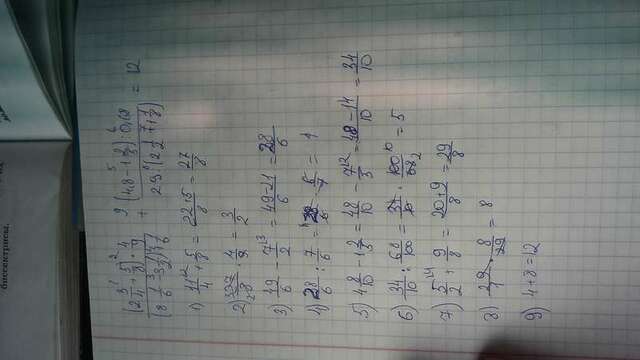 биссектрисы.
(2 3/4 + 5/8) · 4/9 / (8 1/6 - 3 1/2) : 7/6 + (4,8 - 1 2/5) : 0,68 / 29 : (2 1/2 + 1 1/8) = 12
1) 11/4 + 5/8 = 22+5/8 = 27/8
2) 27/8 · 4/9 = 3/2
3) 49/6 - 7/2 = 49-21/6 = 28/6
4) 28/6 : 7/6 = 28/6 · 6/7 = 4
5) 4 8/10 - 1 2/5 = 48/10 - 7/5 = 48-14/10 = 34/10
6) 34/10 : 68/100 = 34/10 · 100/68 = 5
7) 5/2 + 9/8 = 20+9/8 = 29/8
8) 29/1 · 8/29 = 8
9) 4+8=12